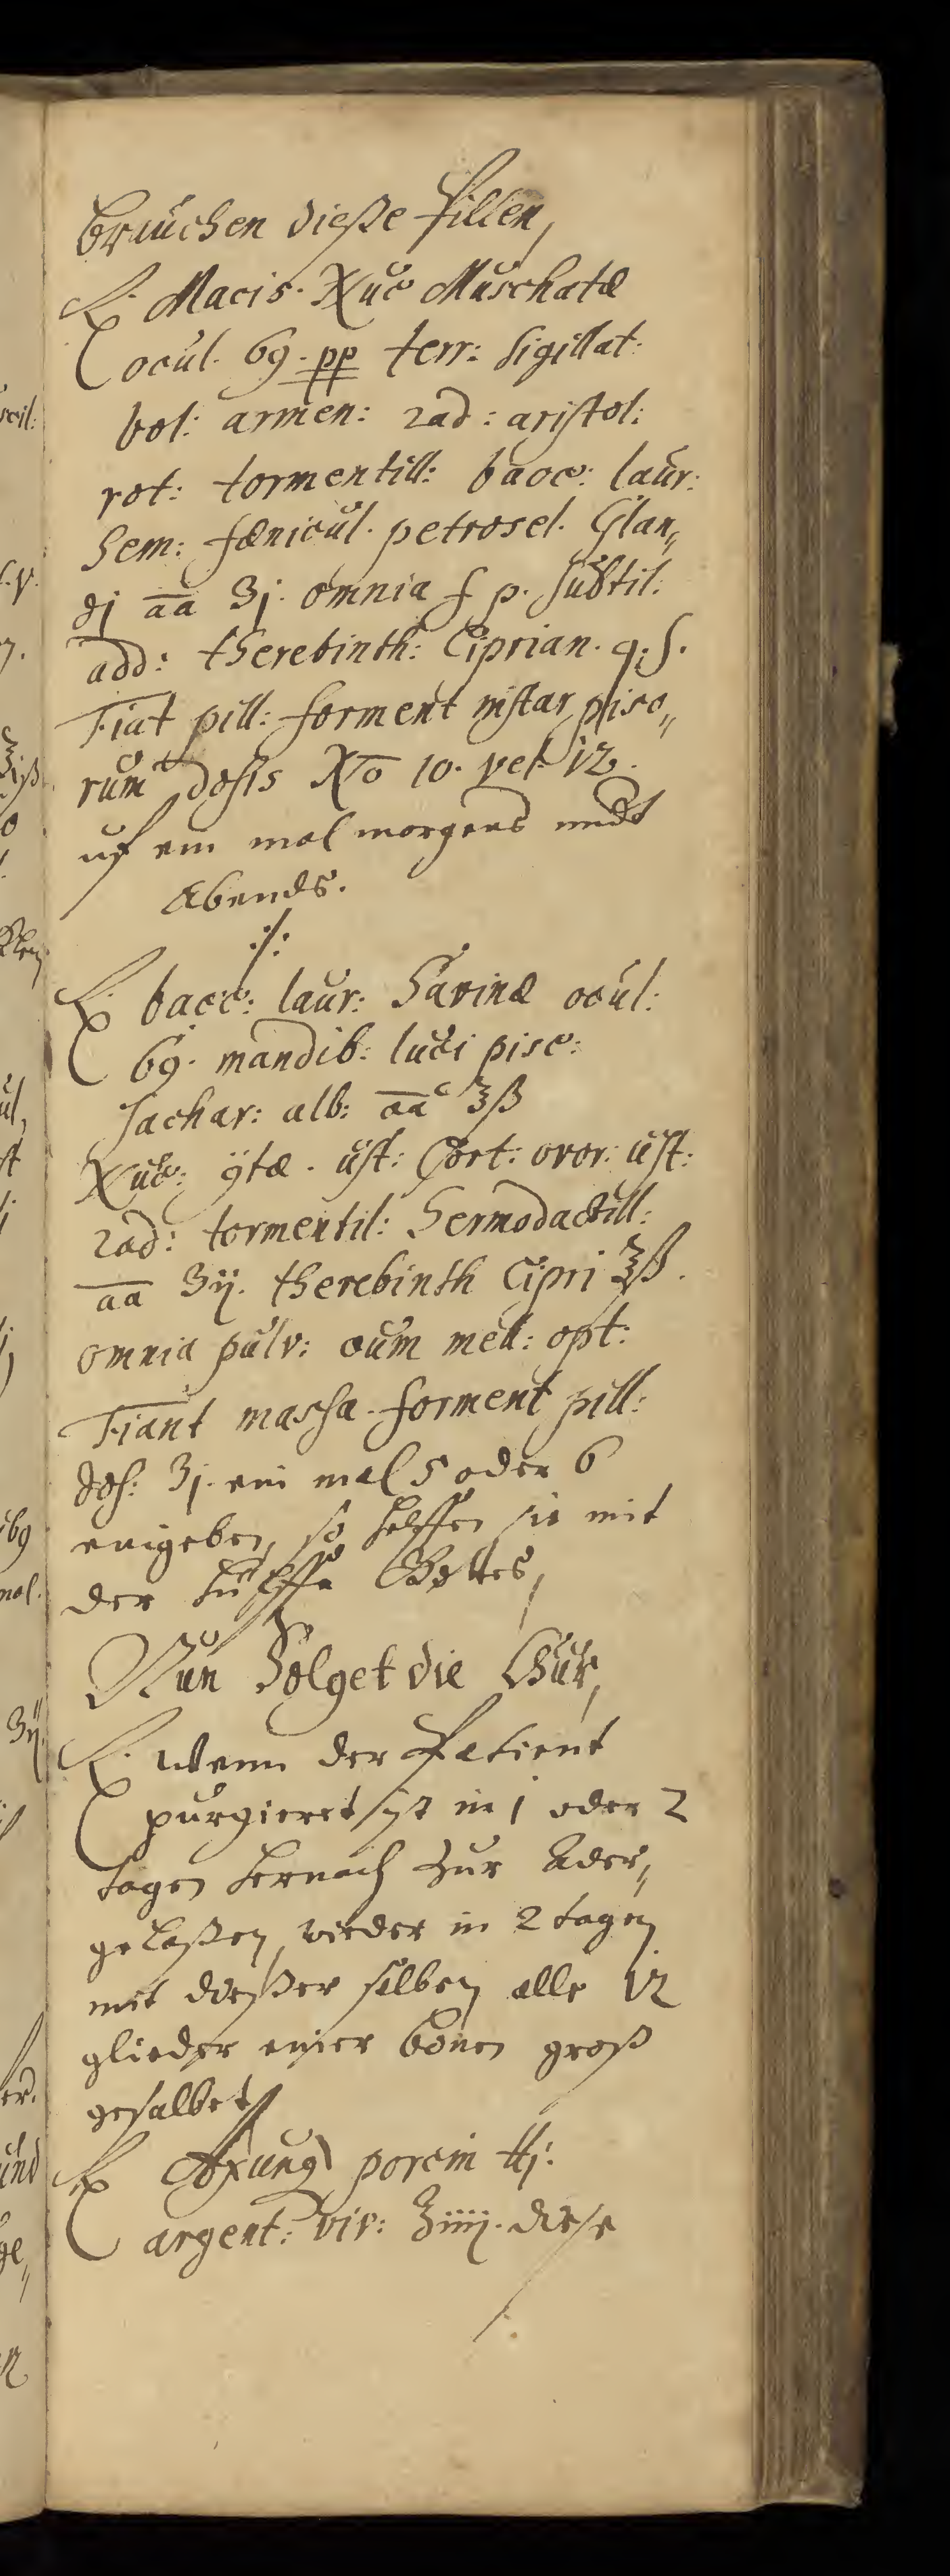 bruchen dieße Pillen,
℞. Macis. Nuc Muschatæ
ocul. 69. pp terr: sigillat:
bol: armen: rad: aristol:
rot: tormentill: bacc: laur:
Sem: fœnicul. petrosel. Glan„
dj āā ʒj. omnia f p. subtil:
add: therebinth: Ciprian. q.s.
Fiat pill: forment instar piso„
rum dosis No 10. vel 12.
uf ein mal morgens undt
Abends.
:/:
℞. bacc: laur: Savinæ ocul:
69. mandib: luci pisc:
sachar: alb: āā ʒß
Nuc: ÿtæ. ust: Cort: ovor: ust:
rad: tormentil: Hermodactill:
āā ʒij. therebinth Cipri ℥ß.
omnia pulv: cum mell: opt:
Fiant massa. forment pill:
dos: ʒj. ein mal 5 oder 6
eingeben, so helffen sie mit
der hülffe Gottes,
Nun Folget die Chur,
℞. Wenn der Patient
purgieret ist in 1 oder 2
tagen hernach zur Ader„
gelaßen, wieder in 2 tagen
mit dießer salben alle 12
glieder einer bonen groß
gesalbet
℞ Axung porcin ℔j.
argent: viv: ℥iiij. diese